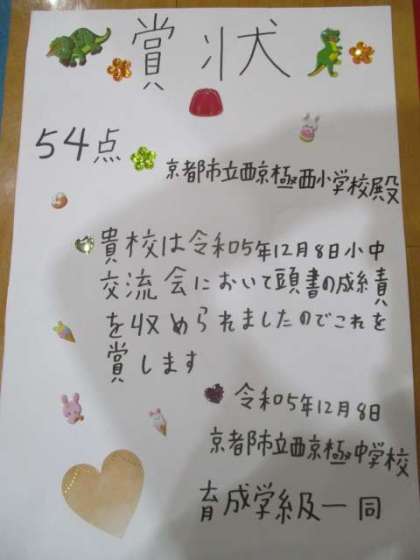 賞状
54点
京都市立西京極西小学校殿
貴校は令和05年12月8日小中
交流会において頭書の成績
を収められましたのでこれを
賞します
令和05年12月8日
京都市立西京極中学校
育成学級一同